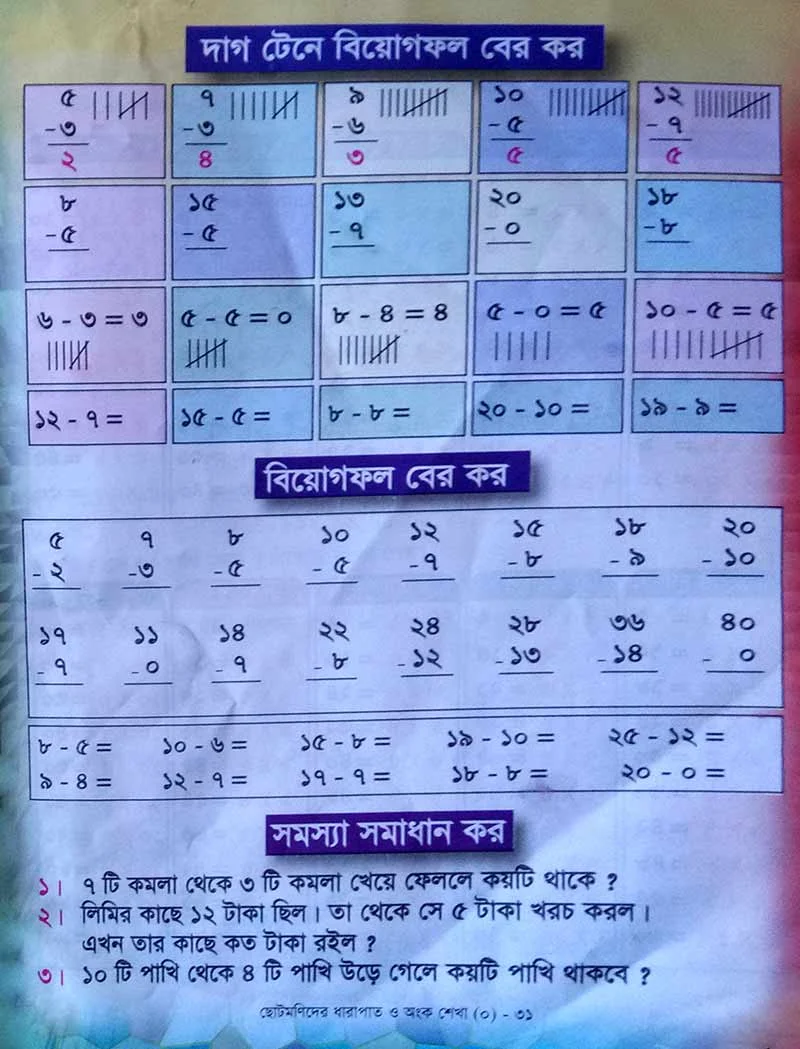 দাগ টেনে বিয়োগফল বের কর
৫ ৭ ৯ ১০ ১২
-৩ -৩ -৬ - ৫ - ৭
২ ৪ ৩ ৫ ৫
৮ ১৫ ১৩ ২০ ১৮
-৫ - ৫ - ৭ - ০ - ৮
৬ - ৩ = ৩ ৫ - ৫ = ০ ৮ - ৪ = ৪ ৫ - ০ = ৫ ১০ - ৫ = ৫
১২ - ৭ = ১৫ - ৫ = ৮ - ৮ = ২০ - ১০ = ১৯ - ৯ =
বিয়োগফল বের কর
৫ ৭ ৮ ১০ ১২ ১৫ ১৮ ২০
- ২ -৩ - ৫ - ৫ - ৭ - ৮ - ৯ - ১০
১৭ ১১ ১৪ ২২ ২৪ ২৮ ৩৬ ৪০
- ৭ - ০ - ৭ - ৮ - ১২ - ১৩ - ১৪ - ০
৮ - ৫ = ১০ - ৬ = ১৫ - ৮ = ১৯ - ১০ = ২৫ - ১২ =
৯ - ৪ = ১২ - ৭ = ১৭ - ৭ = ১৮ - ৮ = ২০ - ০ =
সমস্যা সমাধান কর
১। ৭ টি কমলা থেকে ৩ টি কমলা খেয়ে ফেললে কয়টি থাকে ?
২। লিমির কাছে ১২ টাকা ছিল। তা থেকে সে ৫ টাকা খরচ করল।
এখন তার কাছে কত টাকা রইল ?
৩। ১০ টি পাখি থেকে ৪ টি পাখি উড়ে গেলে কয়টি পাখি থাকবে ?
ছোটমণিদের ধারাপাত ও অংক শেখা (০) - ৩১